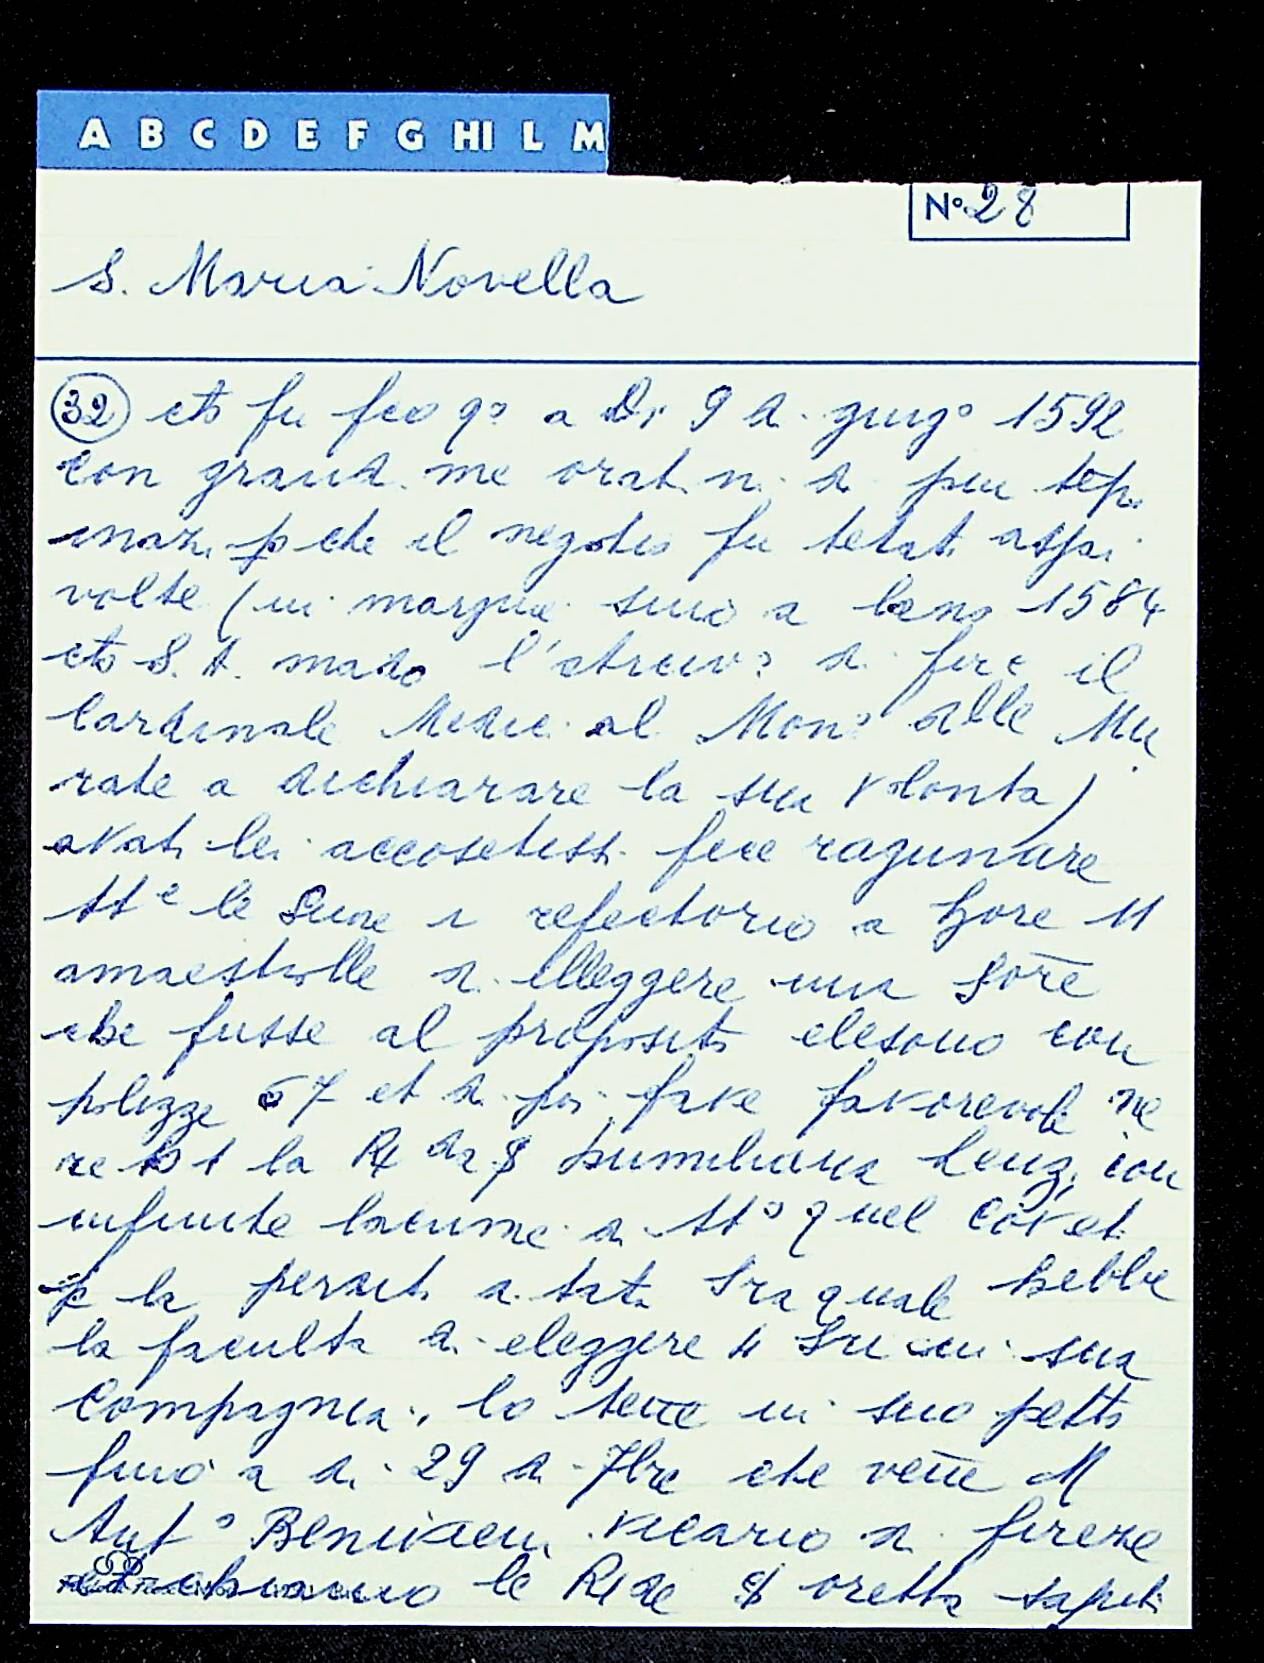 A B C D E F G HI L M
N° 28
S. Maria Novella
32 cto fu fco q° a Di 9 d. giug° 1592
con grand. me orat. ni di piu tep.
inaz. p che il negotio fu tetat. assai
volte (in margine sino a l'ano 1584
cto S. A. mado l' d. fire il
Cardinale Medici al Mon° delle Mu
rate a dichiarare la sua volonta)
avati lei fece ragunare
tt e le Suore i refettorio a hore 11
amaestrolle d. elleggere una sore
che fusse al proposito elesono con
polizze 67 et di poi fave favorevoli ne
re la Rda S umiliana Lenzi con
infinite lacrime di tt° quel covet.
p la perdit. d. tata Sra quale hebbe
la faculta di eleggere 4 Sri in sua
Compagnia, lo tene in suo petto
fino a di 29 di 7bre che vene M
Ant° Benivieni vicario di fireze
le Rde S oretta Sapiti